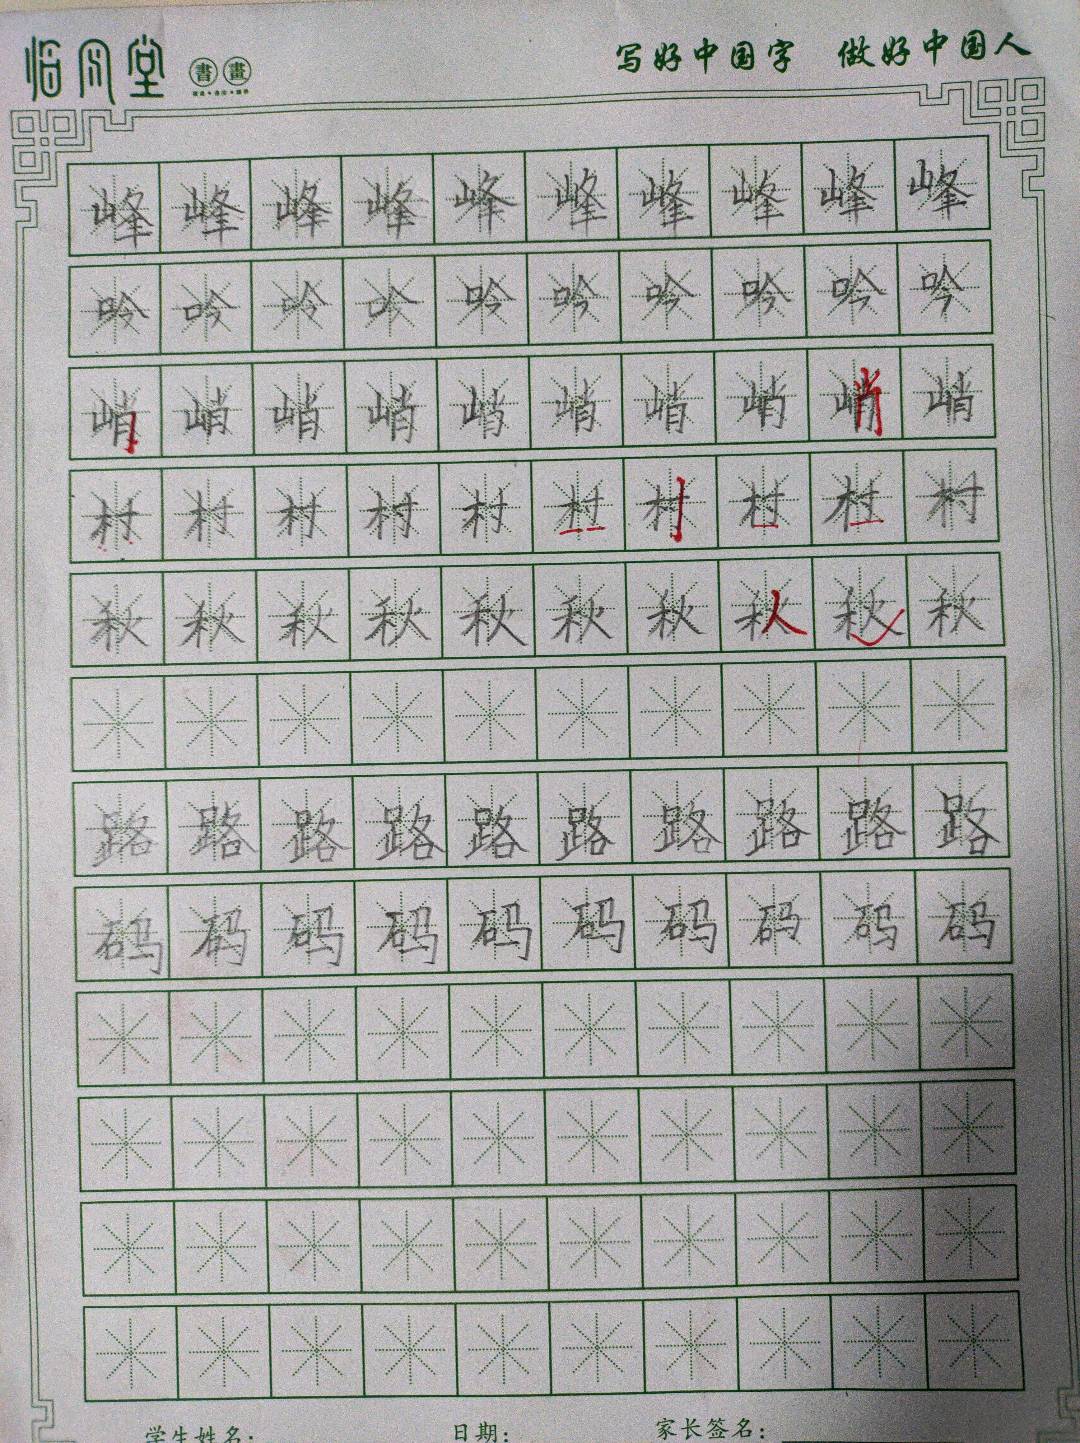 临月堂 書畫 写好中国字 做好中国人
峰峰峰峰峰峰峰峰峰峰
吟吟吟吟吟吟吟吟吟吟
峭峭峭峭峭峭峭峭峭峭
村村村村村村村村村村
秋秋秋秋秋秋秋秋秋秋
路路路路路路路路路路
码码码码码码码码码码
学生姓名: 日期: 家长签名: